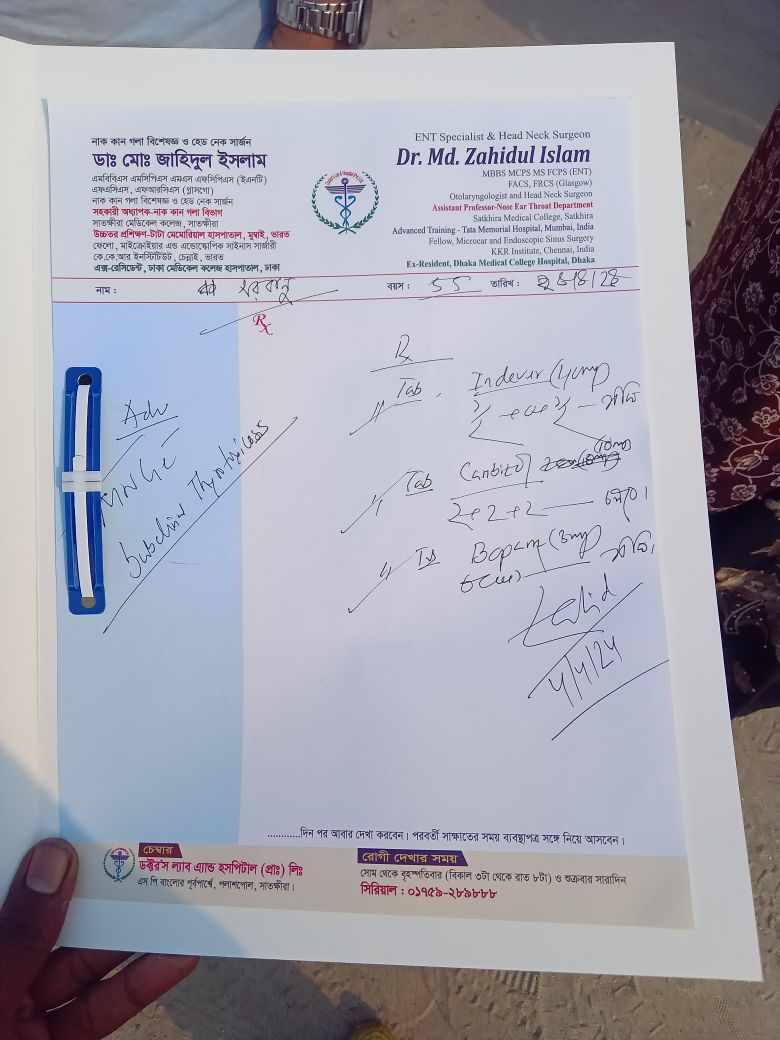 নাক কান গলা বিশেষজ্ঞ ও হেড নেক সার্জন
ডাঃ মোঃ জাহিদুল ইসলাম
এমবিবিএস এমসিপিএস এমএস এফসিপিএস (ইএনটি)
এফএসিএস, এফআরসিএস (গ্লাসগো)
নাক কান গলা বিশেষজ্ঞ ও হেড নেক সার্জন
সহকারী অধ্যাপক-নাক কান গলা বিভাগ
সাতক্ষীরা মেডিকেল কলেজ, সাতক্ষীরা
উচ্চতর প্রশিক্ষণ-টাটা মেমোরিয়াল হাসপাতাল, মুম্বাই, ভারত
ফেলো, মাইক্রোইয়ার এন্ড এন্ডোস্কোপিক সাইনাস সার্জারী
কে.কে.আর ইনস্টিটিউট, চেন্নাই, ভারত
এক্স-রেসিডেন্ট, ঢাকা মেডিকেল কলেজ হাসপাতাল, ঢাকা
ENT Specialist & Head Neck Surgeon
Dr. Md. Zahidul Islam
MBBS MCPS MS FCPS (ENT)
FACS, FRCS (Glasgow)
Otolaryngologist and Head Neck Surgeon
Assistant Professor-Nose Ear Throat Department
Satkhira Medical College, Satkhira
Advanced Training - Tata Memorial Hospital, Mumbai, India
Fellow, Microear and Endoscopic Sinus Surgery
KKR Institute, Chennai, India
Ex-Resident, Dhaka Medical College Hospital, Dhaka
নাম : বয়স : 55 তারিখ :
Rx
Adv
Rx
Tab. Indever (10mg
Tab
(10mg
Bopam (3mg
4/4/24
............দিন পর আবার দেখা করবেন। পরবর্তী সাক্ষাতের সময় ব্যবস্থাপত্র সঙ্গে নিয়ে আসবেন।
চেম্বার
ডক্টর'স ল্যাব এ্যান্ড হসপিটাল (প্রাঃ) লিঃ
এস পি বাংলোর পূর্বপার্শ্বে, পলাশপোল, সাতক্ষীরা।
রোগী দেখার সময়
সোম থেকে বৃহস্পতিবার (বিকাল ৩টা থেকে রাত ৮টা) ও শুক্রবার সারাদিন
সিরিয়াল : ০১৭৫৯-২৮৯৮৮৮